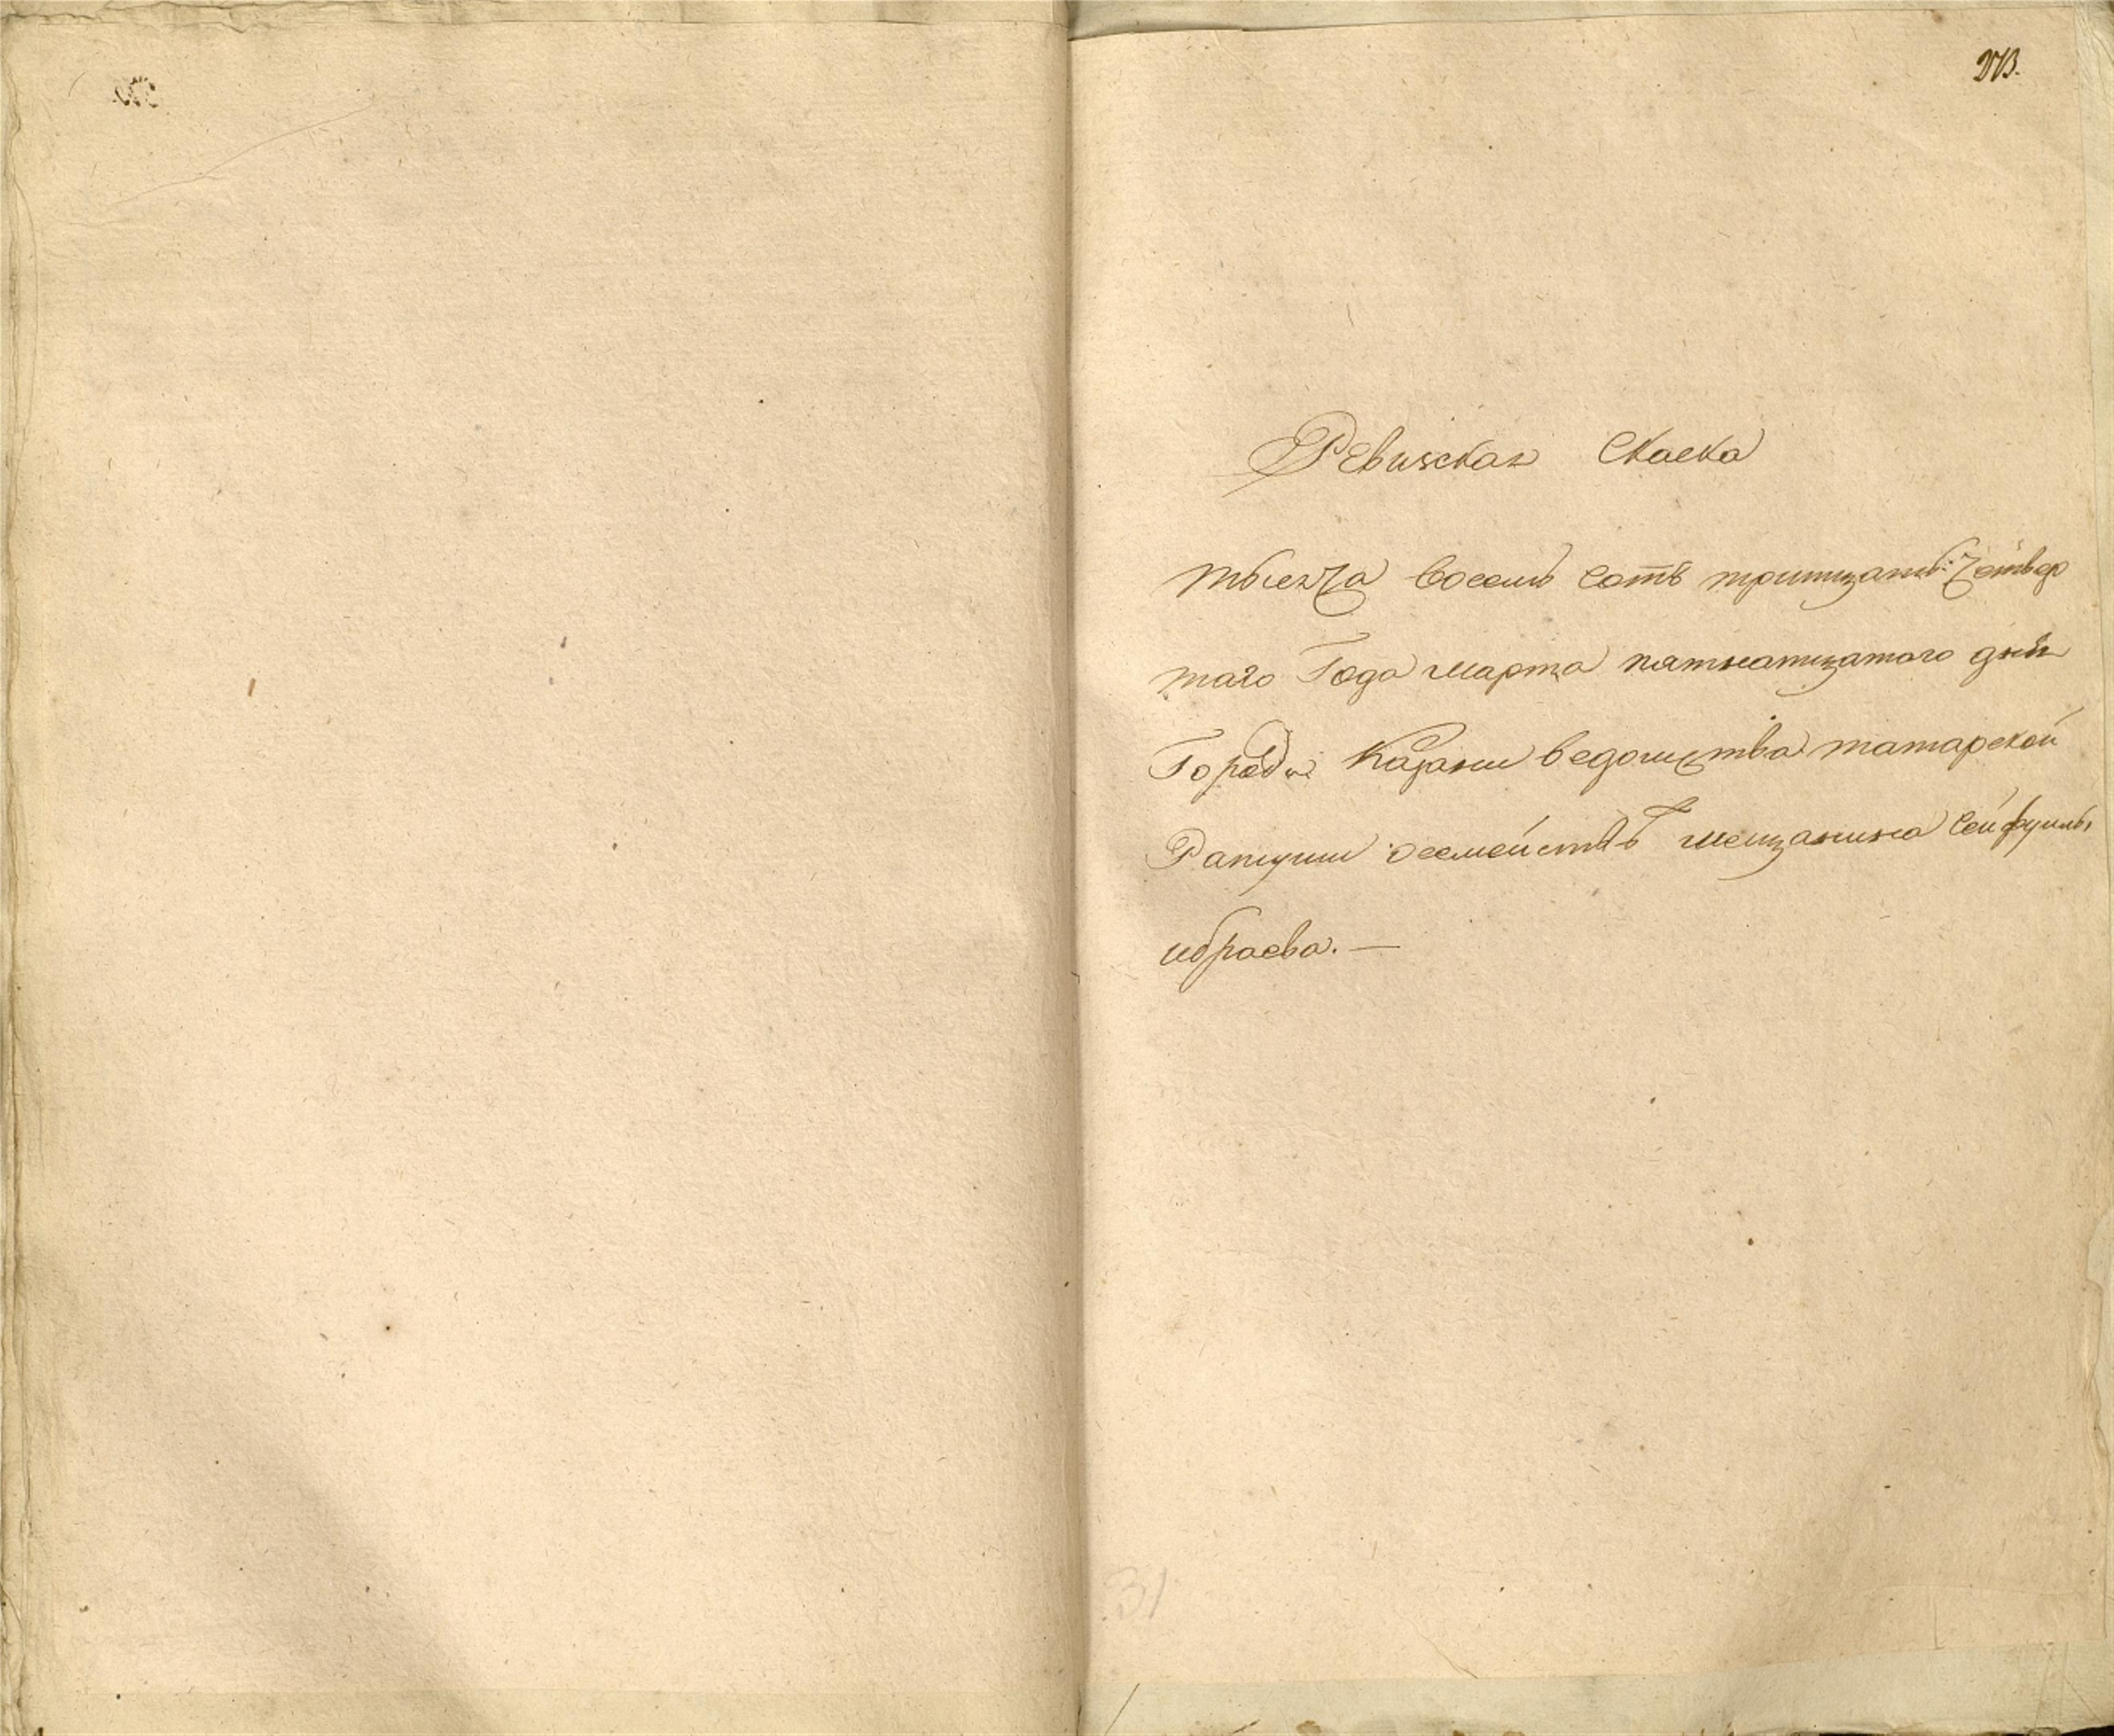 273.
Ревизская Скаска
тысяча восемь сотъ тритцать четвер
таго Года марта пятнатцатого дня
Города Казани ведомства татарской
Ратуши осемействѣ мещанина Сейфуллы
ибраева. —
31